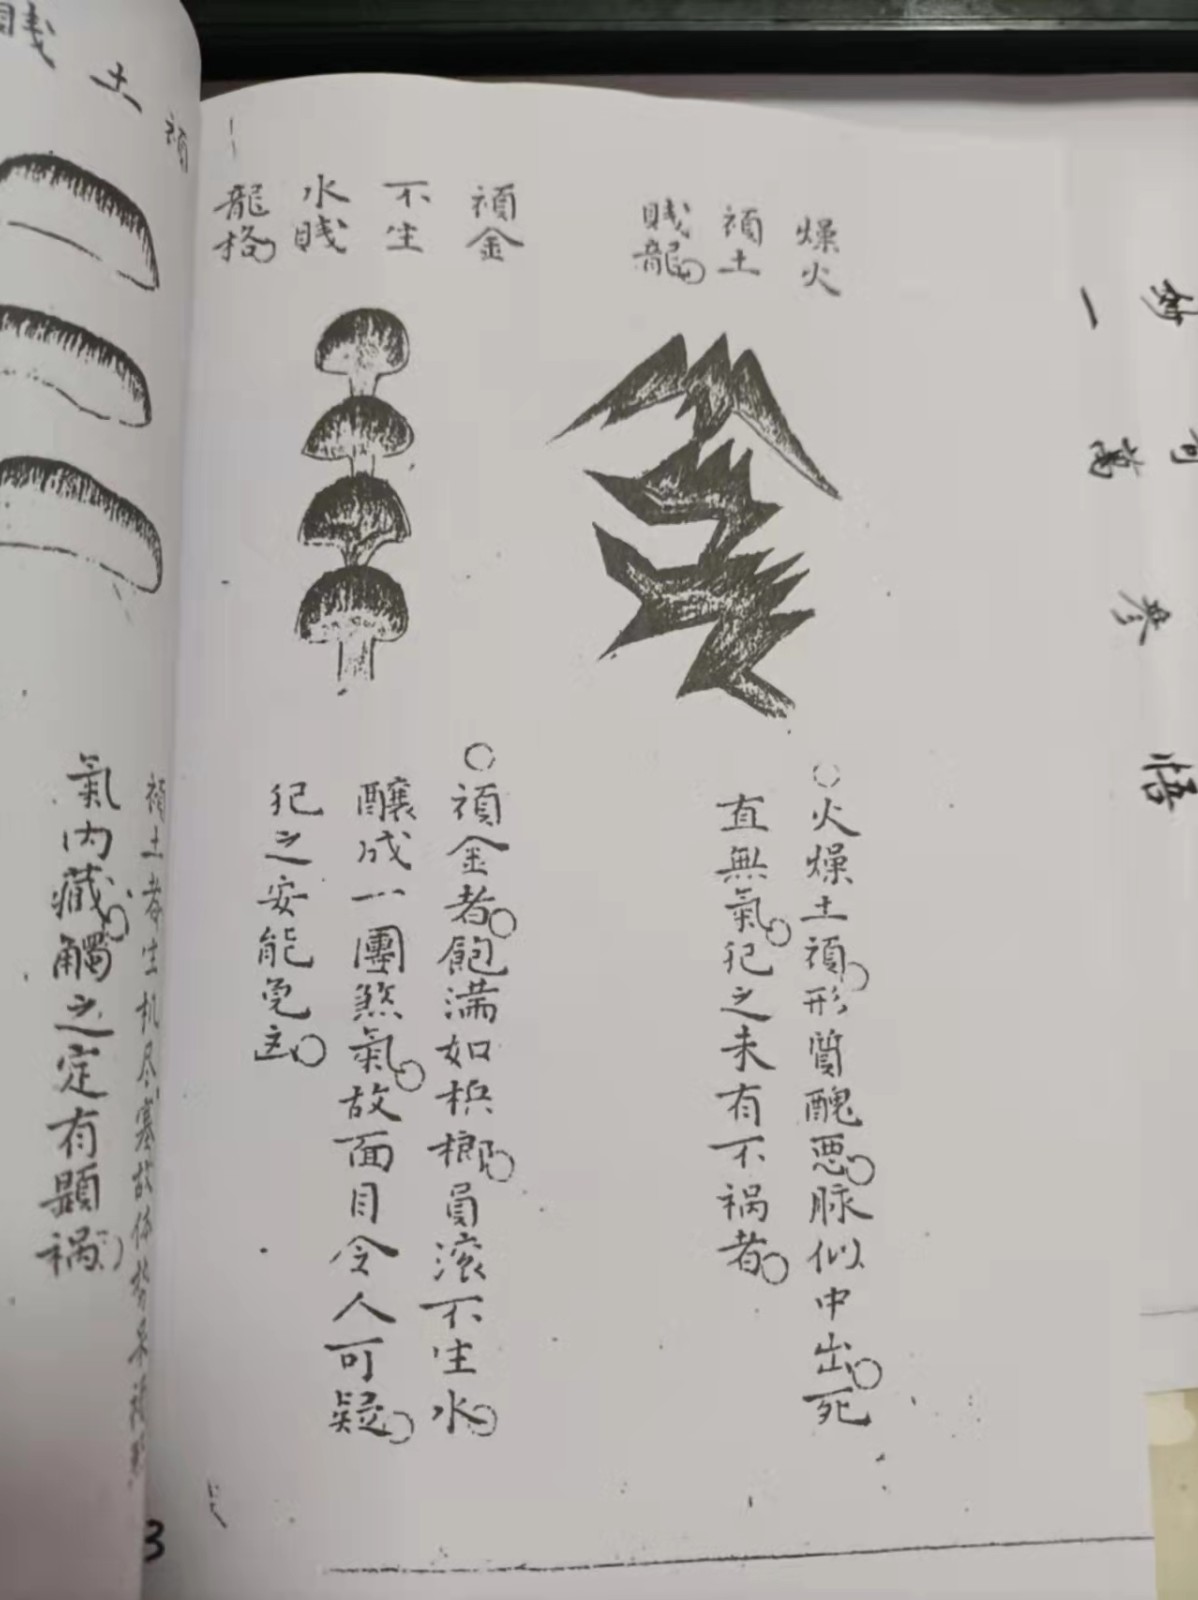 燥火
頑土
賤龍
○火燥土頑形質醜惡脉似中出死
直無氣犯之未有不禍者
頑金
不生
水賤
龍格
○頑金者飽满如梹榔員滚不生水
釀成一團煞氣故面目令人可疑
犯之安能免
賤土頑
頑土者生机尽塞故体势呆
氣内藏觸之定有顯禍
3
一萬
参悟